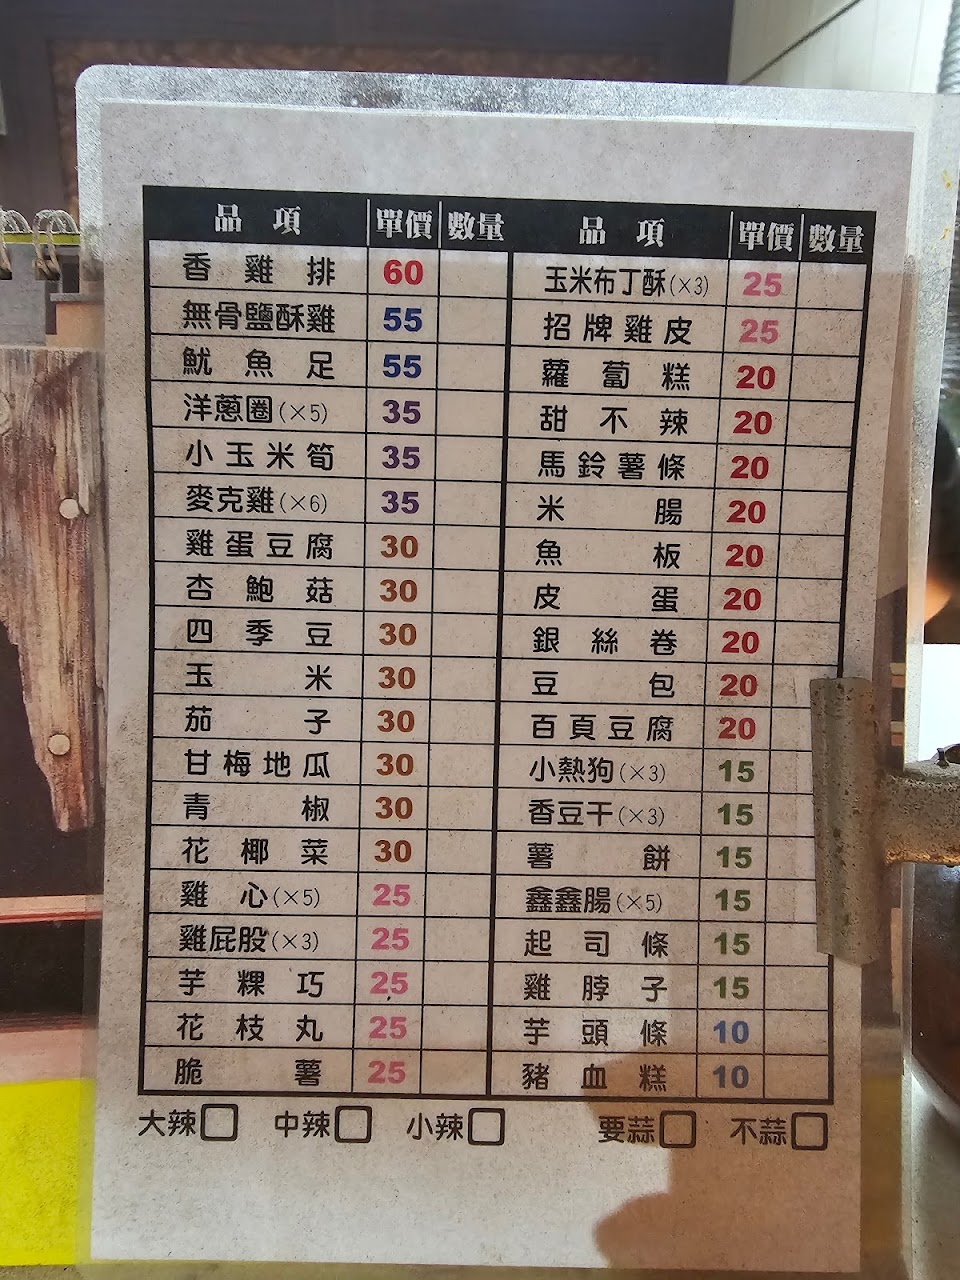 品項 單價 數量 品項 單價 數量
香雞排 60 玉米布丁酥(×3) 25
無骨鹽酥雞 55 招牌雞皮 25
魷魚足 55 蘿蔔糕 20
洋蔥圈(×5) 35 甜不辣 20
小玉米筍 35 馬鈴薯條 20
麥克雞(×6) 35 米腸 20
雞蛋豆腐 30 魚板 20
杏鮑菇 30 皮蛋 20
四季豆 30 銀絲卷 20
玉米 30 豆包 20
茄子 30 百頁豆腐 20
甘梅地瓜 30 小熱狗(×3) 15
青椒 30 香豆干(×3) 15
花椰菜 30 薯餅 15
雞心(×5) 25 鑫鑫腸(×5) 15
雞屁股(×3) 25 起司條 15
芋粿巧 25 雞脖子 15
花枝丸 25 芋頭條 10
脆薯 25 豬血糕 10
大辣 中辣 小辣 要蒜 不蒜